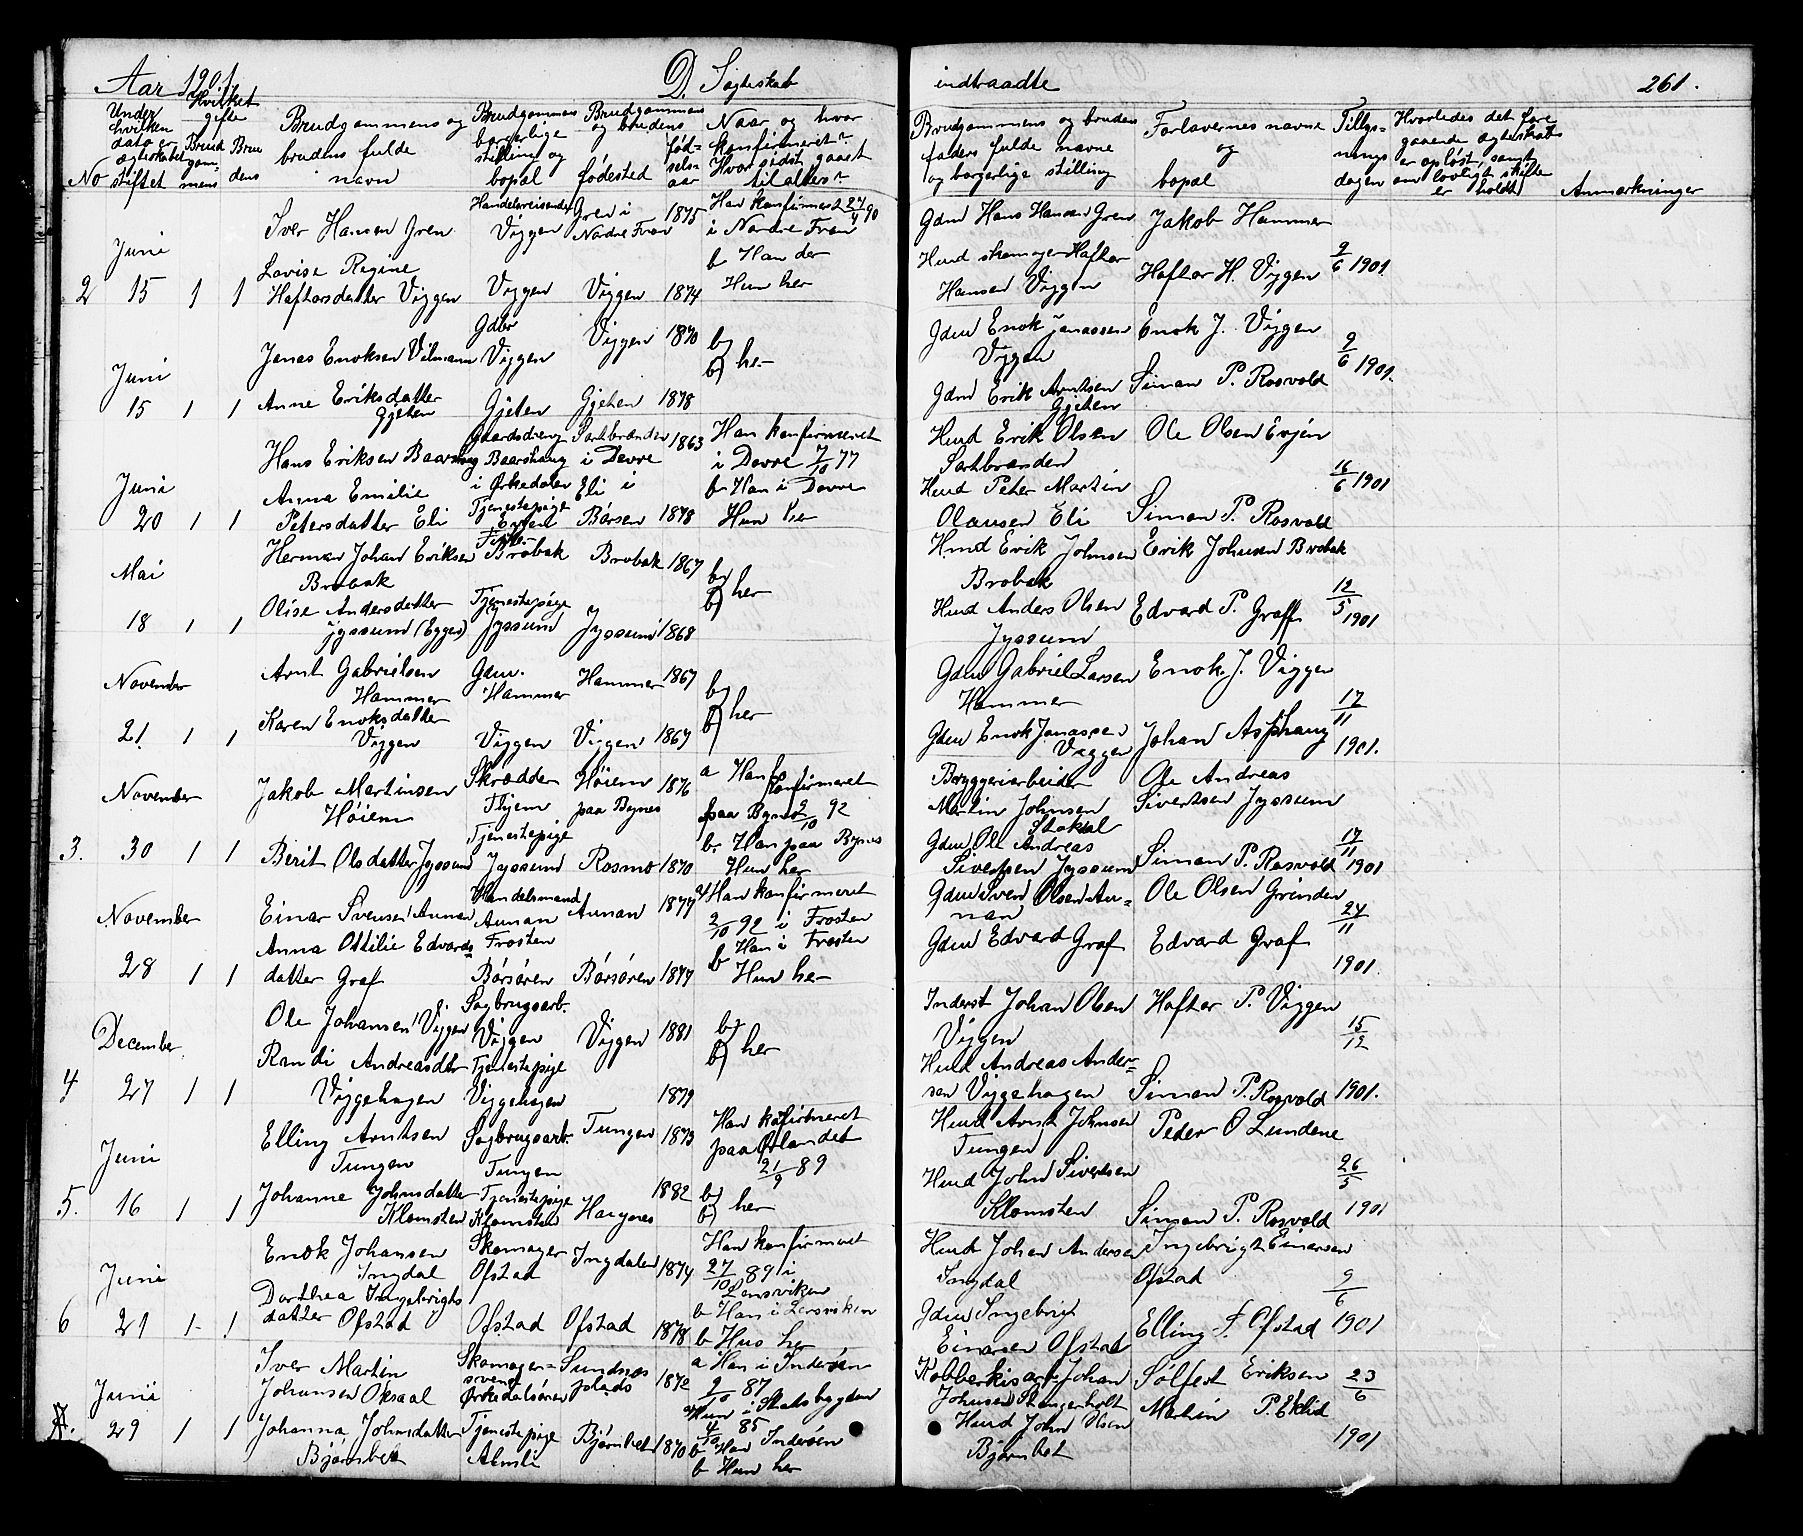 Aar 1901. D. Ægteskab indtraadte 261.
No
Under hvilken dato er ægteskabet stiftet
Hvilket gifte
Brudgommens
Brudens
Brudgommens og brudens fulde navn
Brudgommens borgerlige stilling og bopæl
Brudgommens og brudens fødested
fødselsaar
Naar og hvor konfirmeret? Hvor sidst gaaet til alters?
Brudgommens og brudens faders fulde navne og borgerlige stilling
Forlovernes navne og bopæl
Tillysningsdagen
Hvorledes det foregaaende ægteskab er opløst, samt om lovligt skifte er holdt
Anmærkninger
2 Juni 15 1 1
Iver Hansen Gren Handelsreisende Viggen Gren i Nordre Fron 1875 Han konfirmert 27/4 90 i Nordre Fron
b Han der
Lovise Regine Haftorsdatter Viggen Viggen Viggen 1874 Hun her
Gdm Hans Hansen Gren Jakob Hammer
Husd skomager Haftor Hansen Viggen Haftor H. Viggen 9/6 1901.
Juni 15 1 1
Jonas Enoksen Vilmann Gdbr Viggen Viggen 1870 her
Anne Eriksdatter Gjeten Gjeten Gjeten 1878
Gdm Enok Jonassen Viggen Enok J. Viggen
Gdm Erik Arntsen Gjeten Simon P. Rosvold 9/6 1901.
Juni 20 1 1
Hans Eriksen Baarshaug Gaardsdreng Baarshaug i Ørkedalen i Dovre 1863 Han konfirmeret i Dovre 7/10 77
b Han i Dovre
Anna Emilie Petersdatter Eli Tjenestepige Eli i Børsen 1878 Hun her
Husd Erik Olsen Ole Olsen Evjen
Husd Peter Martin Olausen Eli Simon P. Rosvold 16/6 1901
Mai 18 1 1
Herman Johan Eriksen Brobak Brobak Brobak 1867 her
Olise Andersdatter Jyssum (Eggen) Tjenestepige Jyssum Jyssum 1868
Husd Erik Johnsen Brobak Erik Johnsen Brobak
Husd Anders Olsen Jyssum Edvard P. Graff 12/5 1901
November 21 1 1
Arnt Gabrielsen Hammer Gdm. Hammer Hammer 1867 her
Karen Enoksdatter Viggen Viggen Viggen 1867
Gdm Gabriel Larsen Hammer Enok J. Viggen
Gdm Enok Jonassen Viggen Johan Asphaug 17/11 1901.
3. November 30 1 1
Jakob Martinsen Høiem Skrædder Høiem paa Bynes 1876 a Han konfirmeret paa Bynes 2/10 92
b. Han paa Bynes
Berit Olsdatter Jyssum Tjenestepige Jyssum Rosmo 1870 Hun her
Bryggeriarbeider Martin Johnsen Ole Andreas Sivertsen Jyssum
Gdm Ole Andreas Sivertsen Jyssum Simon P. Rosvold 17/11 1901
November 28 1 1
Einar Svensen Aunan Handelsmand Aunan Frosten Aunan 1877 a Han konfirmeret 2/10 92 i Frosten
b Han i Frosten
Anna Ottilie Edvardsdatter Graf Børsøren Børsøren 1877 Hun her
Gdm Sven Olsen Aunan Ole Olsen Grinden
Gdm Edvard Graf Edvard Graf 24/11 1901.
4 December 27 1 1
Ole Johansen Viggen Sagbrugsarb. Viggen Viggen 1881 her
Randi Andreasdtr Viggehagen Tjenestepige Viggehagen 1879
Inderst Johan Olsen Viggen Haftor P. Viggen
Husd Andreas Andersen Viggehagen Simon P. Rosvold 15/12 1901.
5. Juni 16 1 1
Elling Arntsen Tungen Sagbrugsarb. Tungen Tungen 1873 Han konfirmeret paa Ørlandet 21/9 89
Johanne Johnsdatter Klomsten Tjenestepige Klomsten 1882 her
Husd Arnt Johnsen Tungen Peder O Lundene
Husd John Sivertsen Klomsten Simon P. Rosvold 26/5 1901
6 Juni 21 1 1
Enok Johansen Ingdal Skomager Ofstad Ingdalen 1874 Han konfirmeret 27/10 89 i Lensviken
b Han i Lensviken
Dorthea Ingebrigtsdatter Ofstad Ofstad Ofstad 1878 b Hun her
Husd Johan Andersen Ingdal Ingebrigt Einarsen Ofstad
Gdm Ingebrigt Einarsen Ofstad Elling J. Ofstad 9/6 1901
7. Juni 29 1 1
Iver Martin Johansen Oksaal Skomagersvend Ørkedalsøren Sundnes plads 1872 a Han i Inderøen 9/10 87
Johanna Johnsdatter Bjørnbet Tjenestepige Almli Bjørnbet 1870 a Hun i Stadsbygden 4/10 85
b Han Inderøen
b Hun her
Johan Johnsen Sølfest Eriksen
Husd John Olsen Bjørnbet Martin P. Eklid 23/6 1901